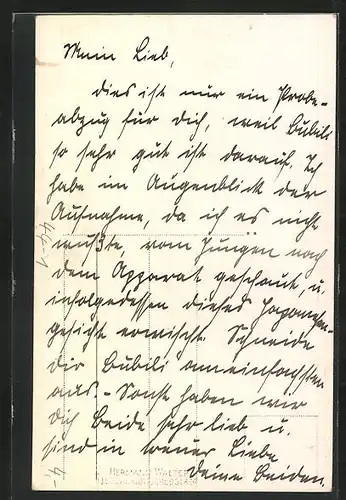 Mein Lieb,
dies ist nur ein Probe-
abzug für dich, weil Bubili
so sehr gut ist darauf. Ich
habe im Augenblick der
Aufnahme, da ich es nicht
wußte, vom Jungen nach
dem Apparat geschaut, u.
infolgedessen dieses Japanesen-
gesicht erwischt. Schneide
dir Bubili am einfachsten
aus. - Sonst haben wir
dich Beide sehr lieb u.
sind in treuer Liebe
deine Beiden.
HERMANN WALTER